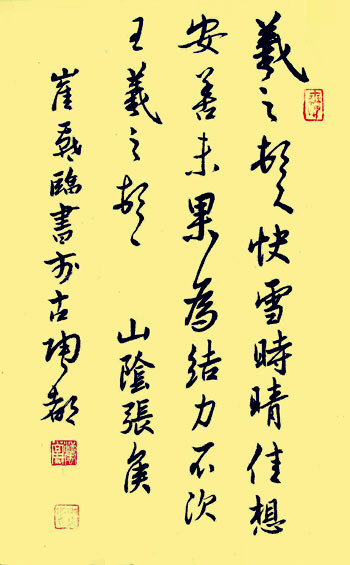 羲之頓首快雪時晴佳想
安善未果為結力不次
王羲之頓首 山陰張侯
崔 臨書於古陶都